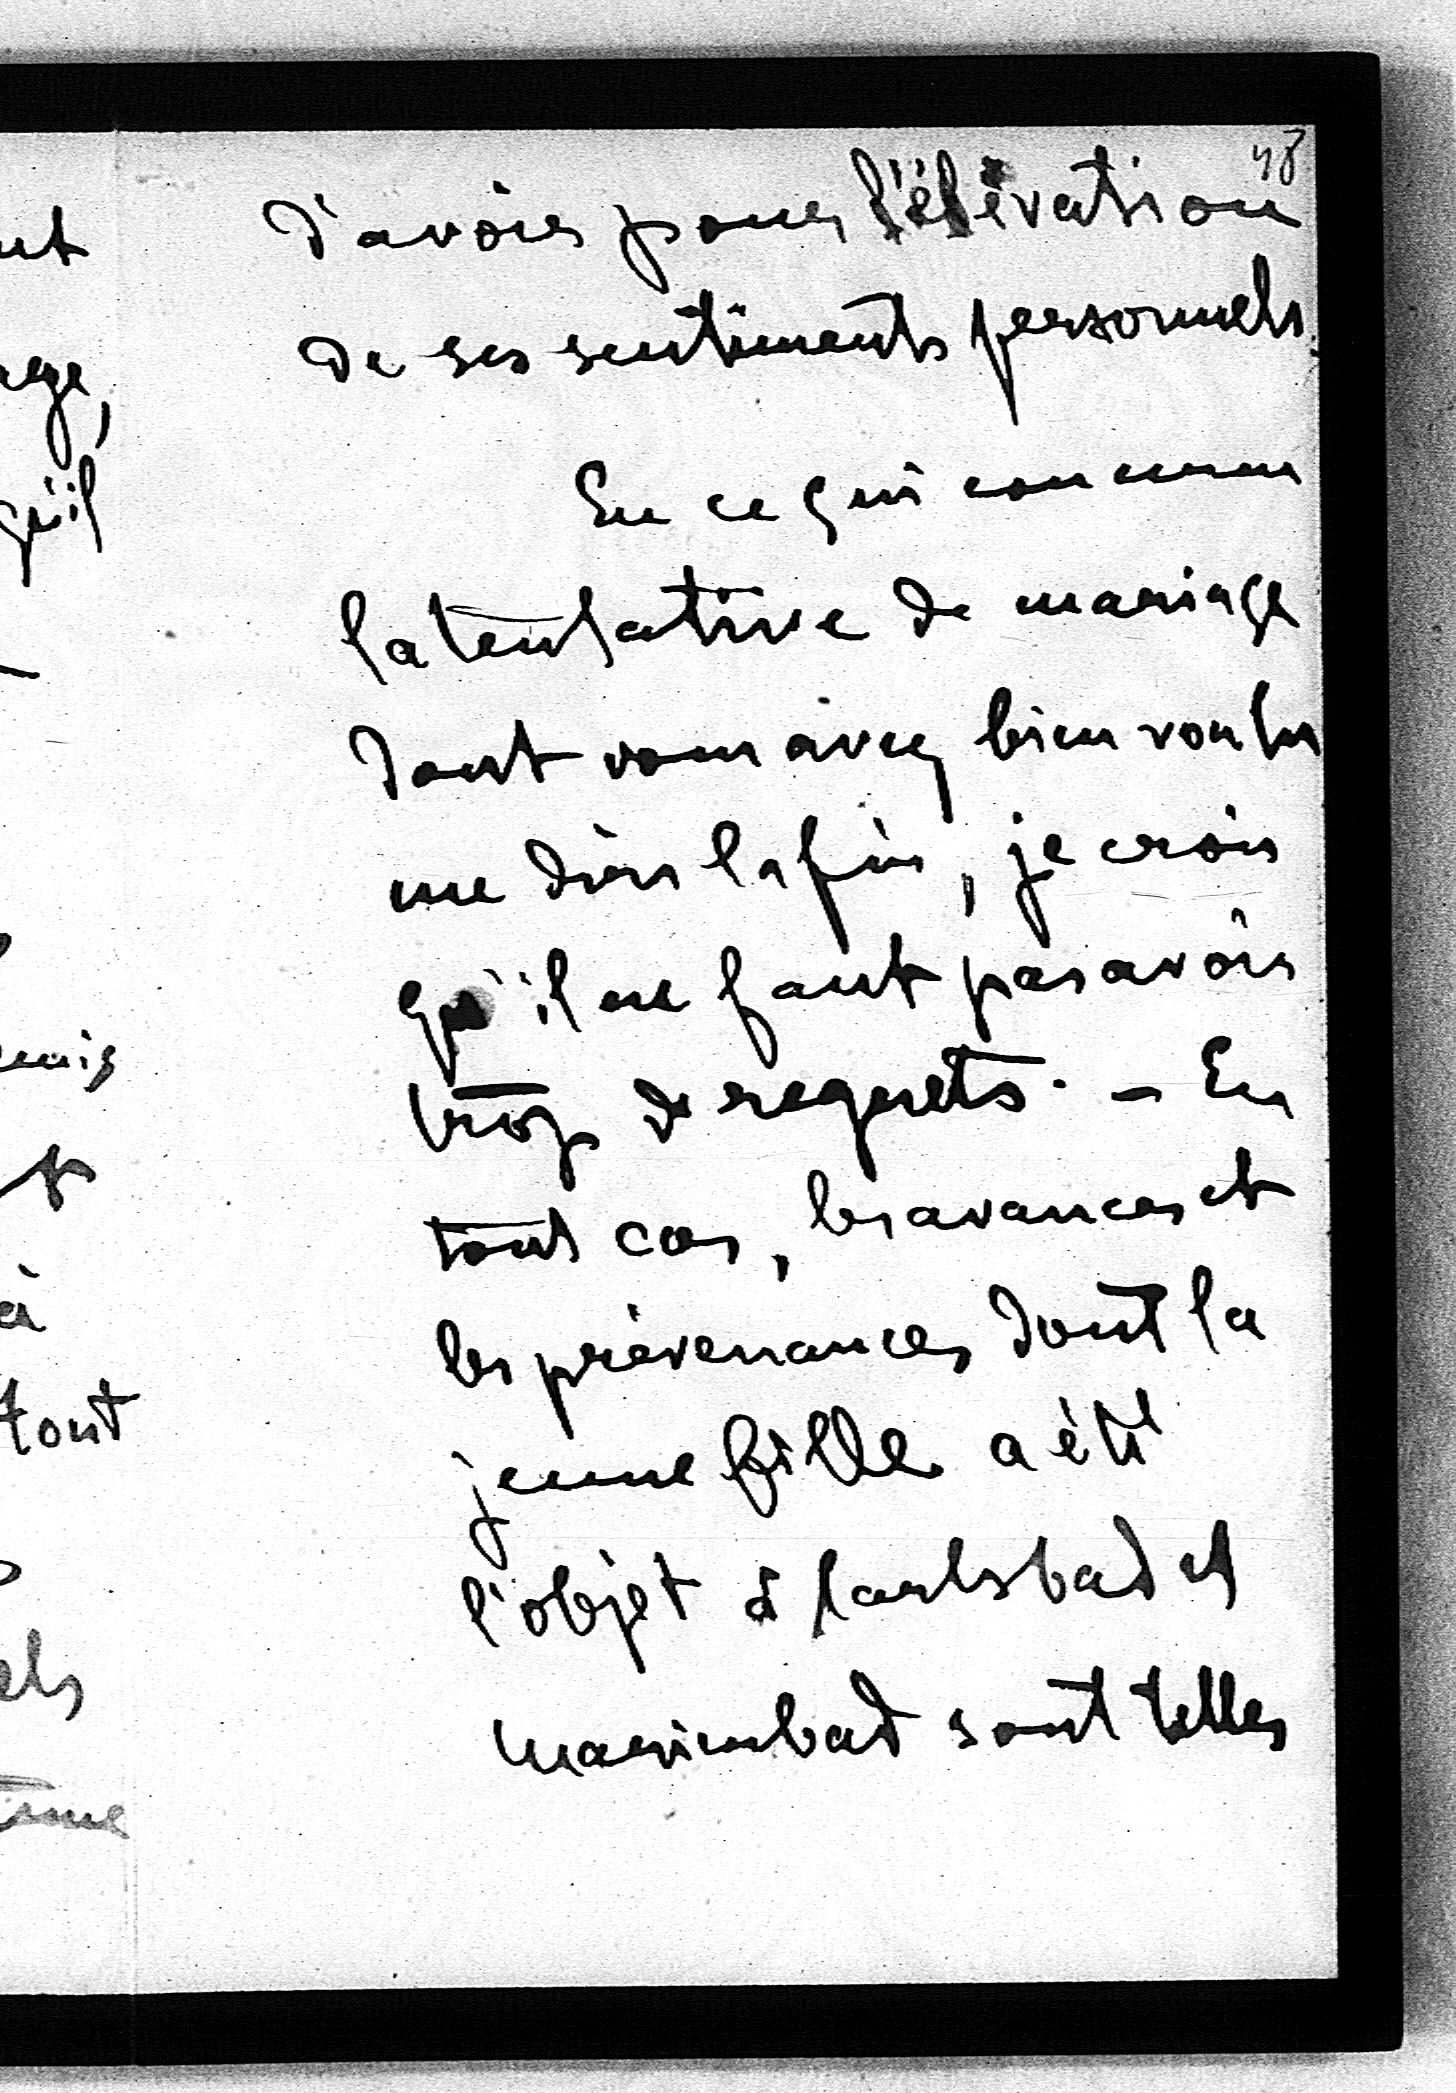 48
d'avoir pour l'élévation
de ses sentiments personnels.
En ce qui concerne
la tentative de mariage
dont vous avez bien voulu
me dire la fin, je crois
qu'il ne faut pas avoir
trop de regrets. — En
tout cas, les avances et
les prévenances dont la
jeune fille a été
l'objet à Carlsbad et
Marienbad sont telles
nt
age,
qu'il
à
tont
els